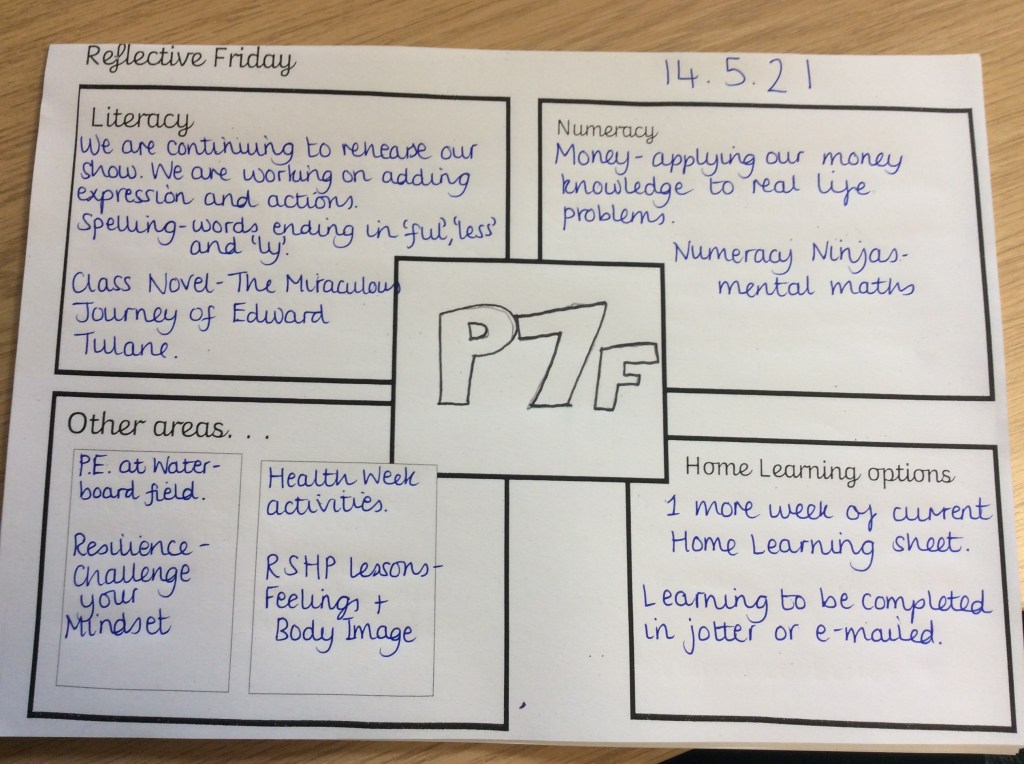 Reflective Friday
14.5.21
Literacy
We are continuing to rehearse our
show. We are working on adding
expression and actions.
Spelling- words ending in 'ful', 'less'
and 'ly'.
Class Novel - The Miraculous
Journey of Edward
Tulane.
Numeracy
Money - applying our money
knowledge to real life
problems.
Numeracy Ninjas-
mental maths
P7F
Other areas. . .
P.E. at Water-
board field.
Resilience -
Challenge
your
Mindset
Health Week
activities.
RSHP Lessons-
Feelings +
Body Image
Home Learning options
1 more week of current
Home Learning sheet.
Learning to be completed
in jotter or e-mailed.